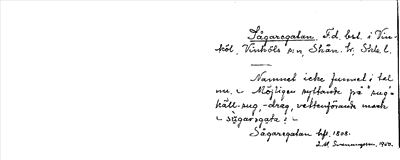 Sågaregatan. F.d. bst. i Vin-
köl, Vinköls sn, Skån. hr, Skbl. l.
Namnet icke funnet i tal
nu. Möjligen syftande på "sug"
käll-sug, -drag, vattenförande mark
sugarsgata?
Sågaregatan bst. 1808.
1950.